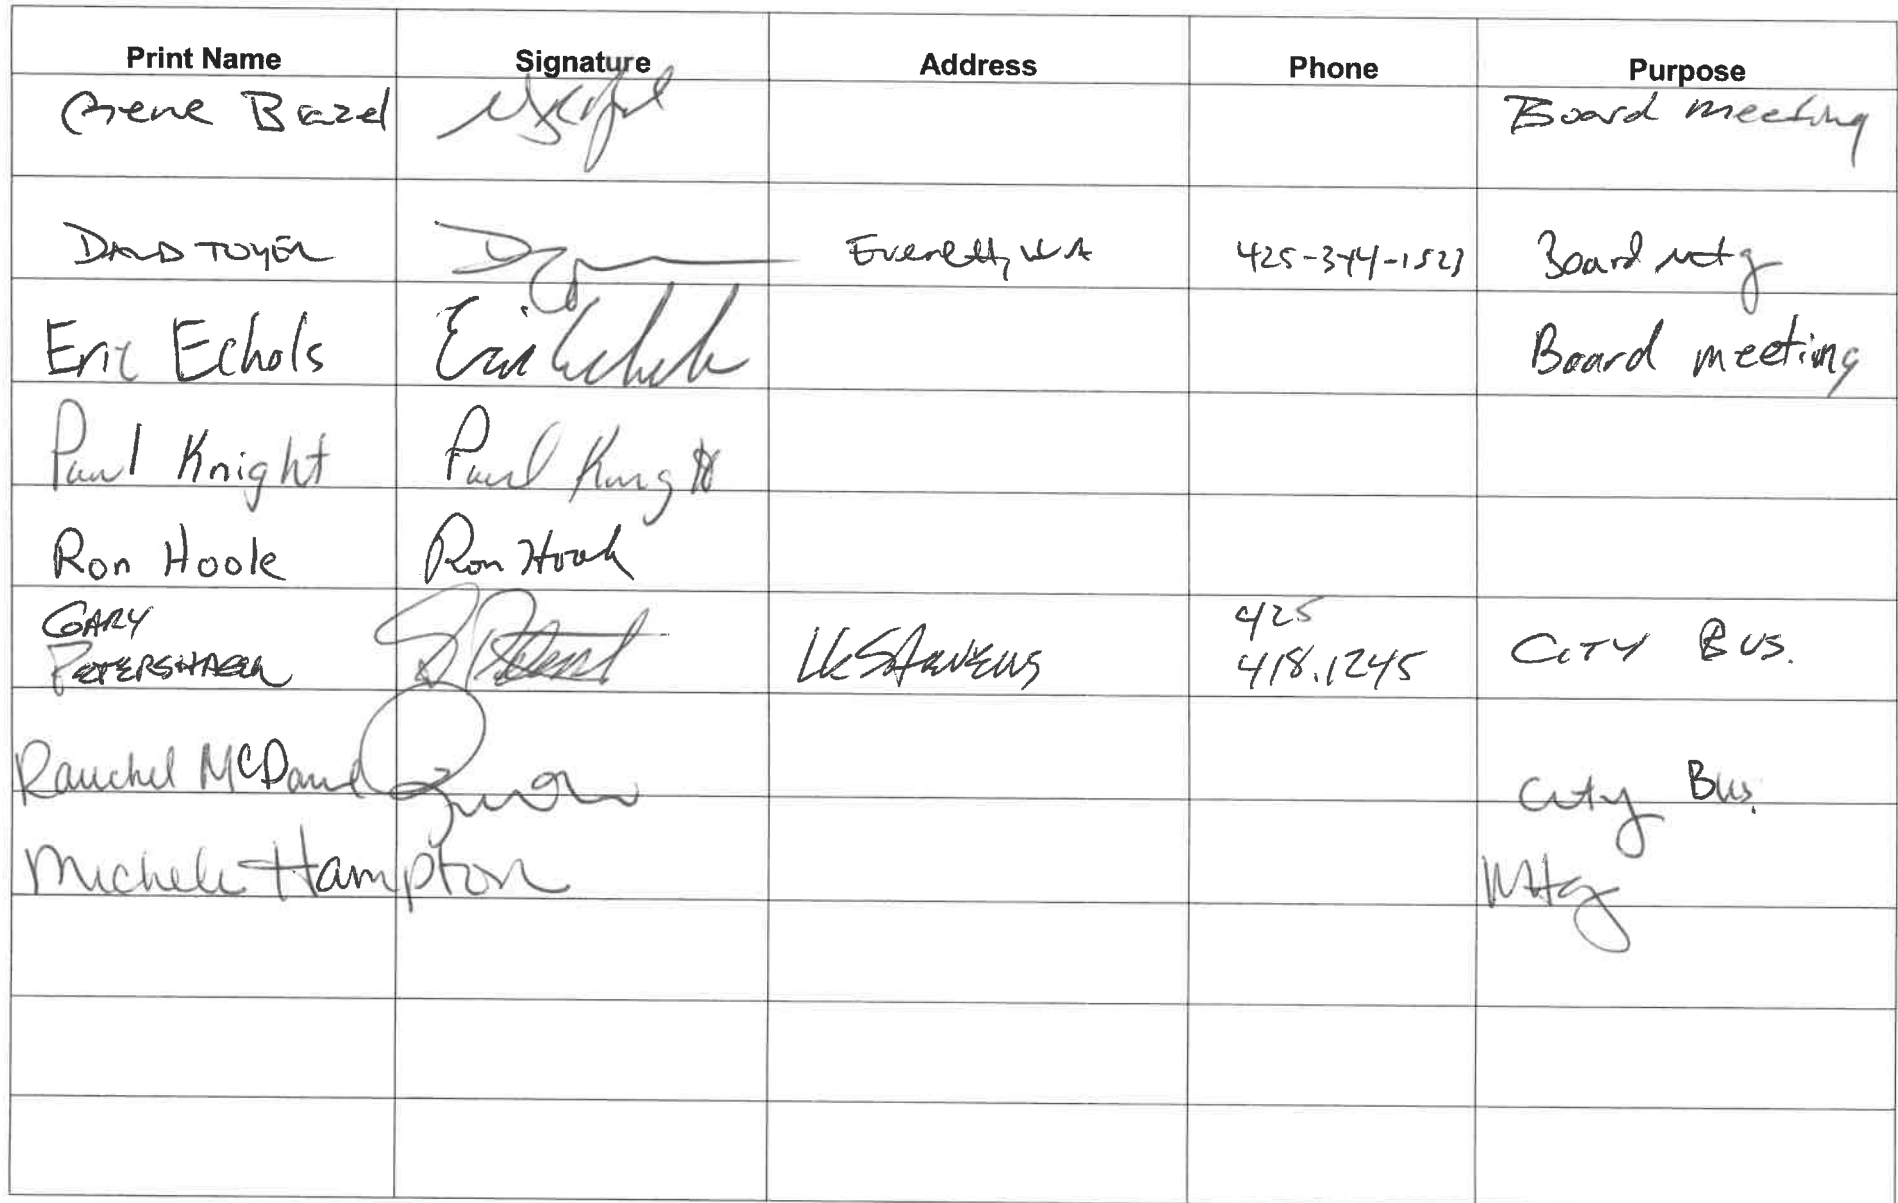 Print Name Signature Address Phone Purpose
Gene Brazel Board meeting
DAVID TOYER Everett, WA 425-344-1523 Board mtg
Eric Echols Eric Echols Board meeting
Paul Knight Paul Knight
Ron Hook Ron Hook
GARY
PETERSHAGEN LK STEVENS 425
418.1245 CITY BUS.
Rauchel McDaniel City Bus.
Michele Hampton Mtg